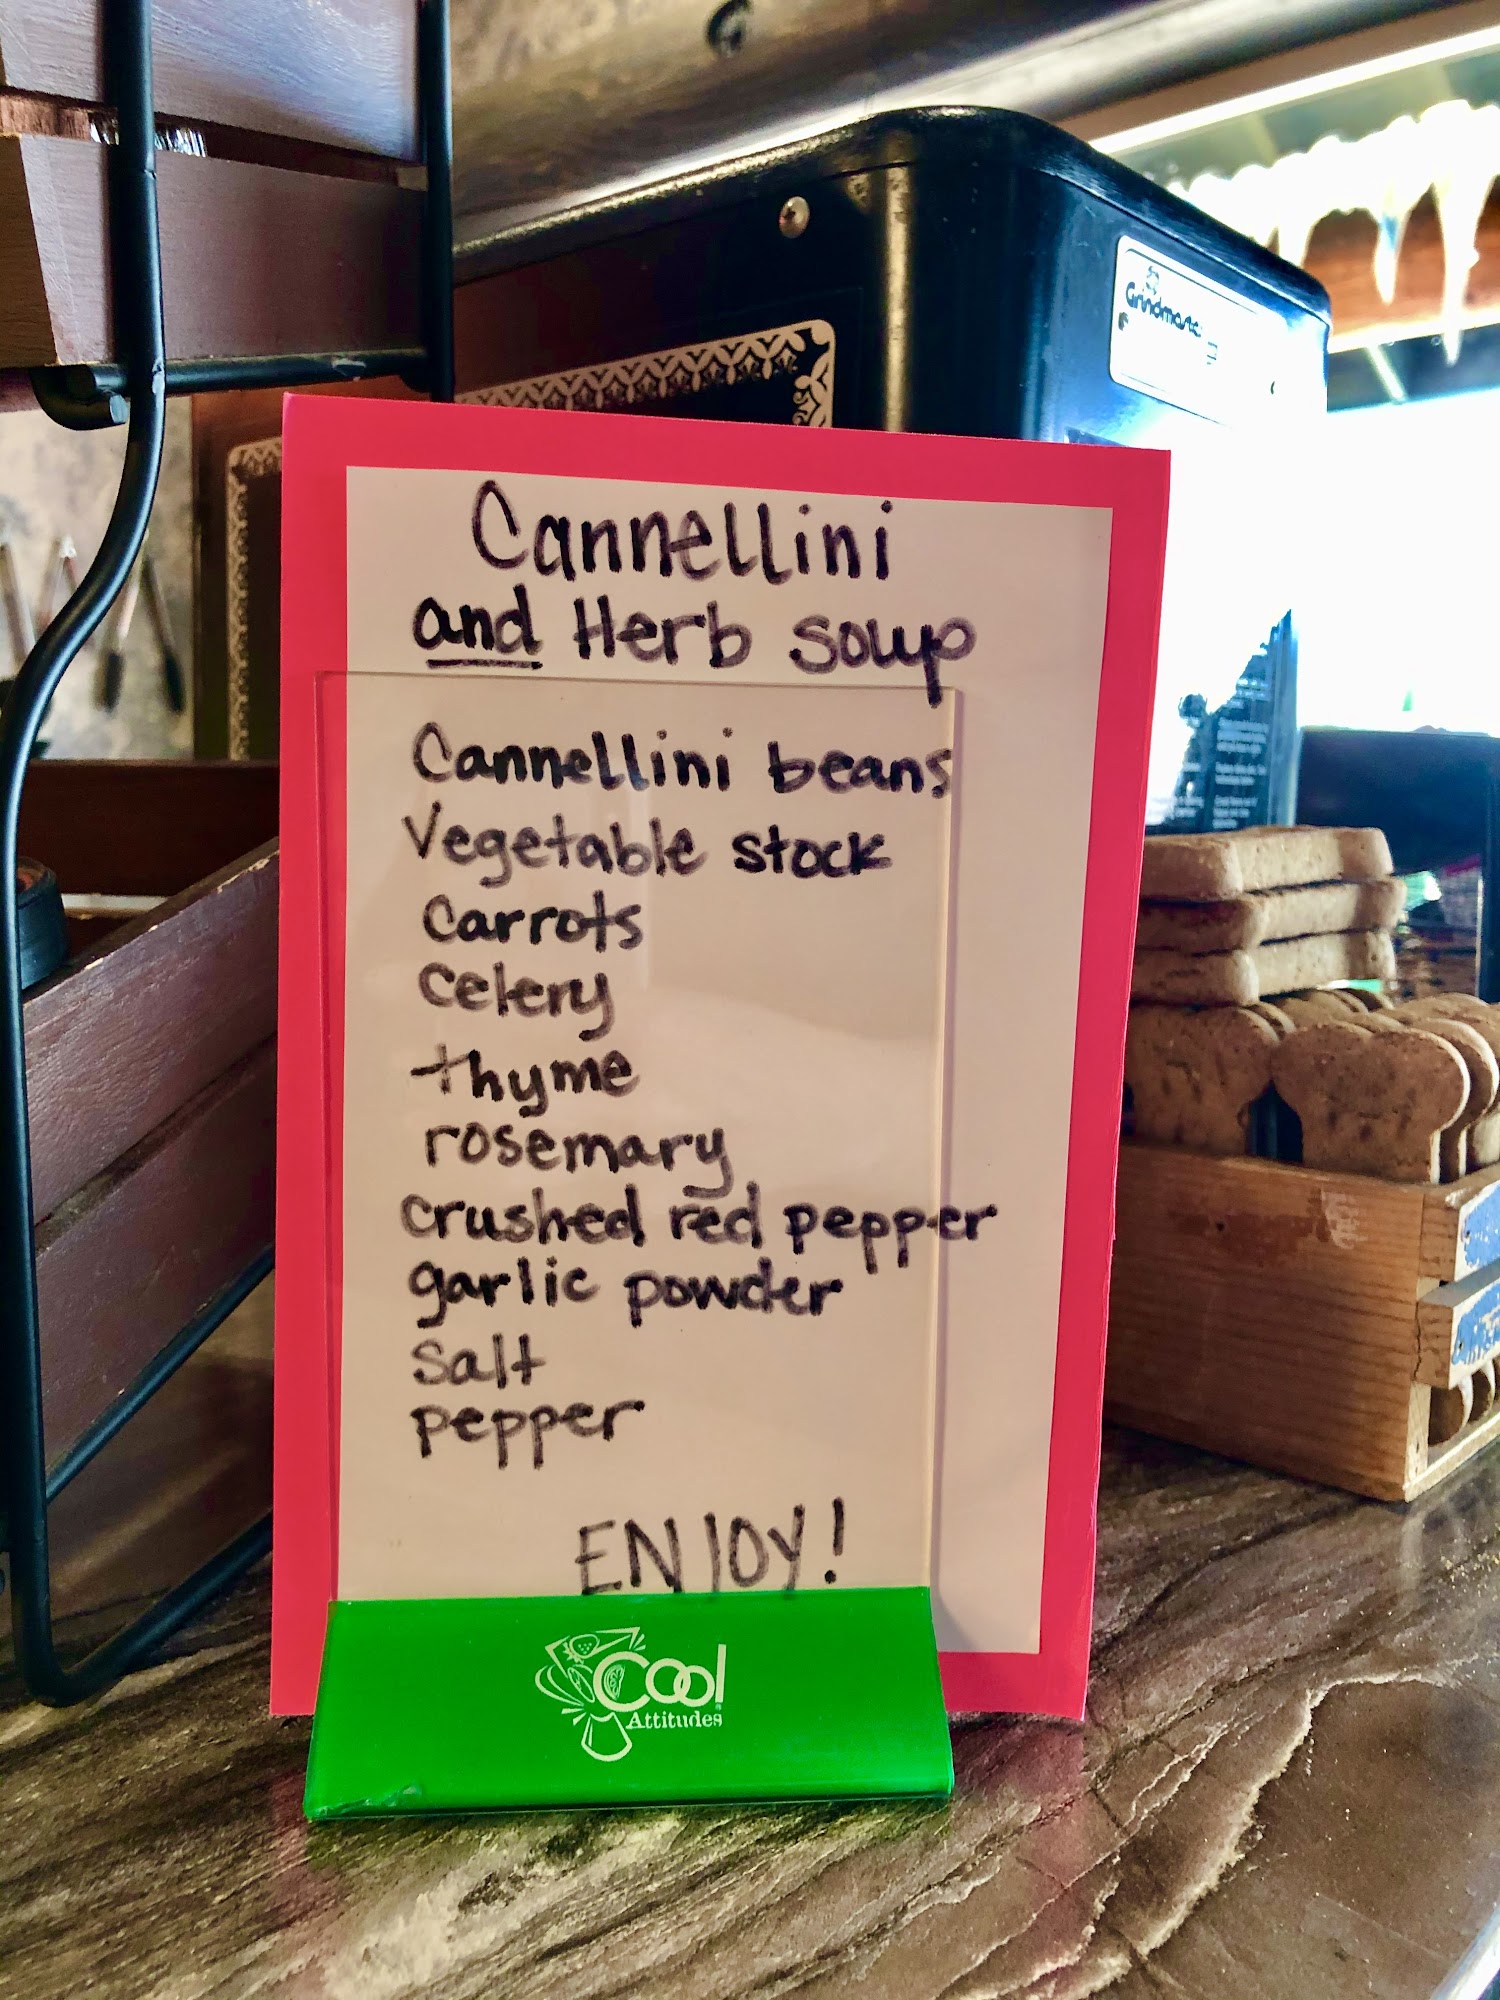 Grindmaster
Cannellini
and Herb soup
Cannellini beans
Vegetable stock
carrots
celery
thyme
rosemary
crushed red pepper
garlic powder
salt
pepper
ENJOY!
Cool
Attitudes